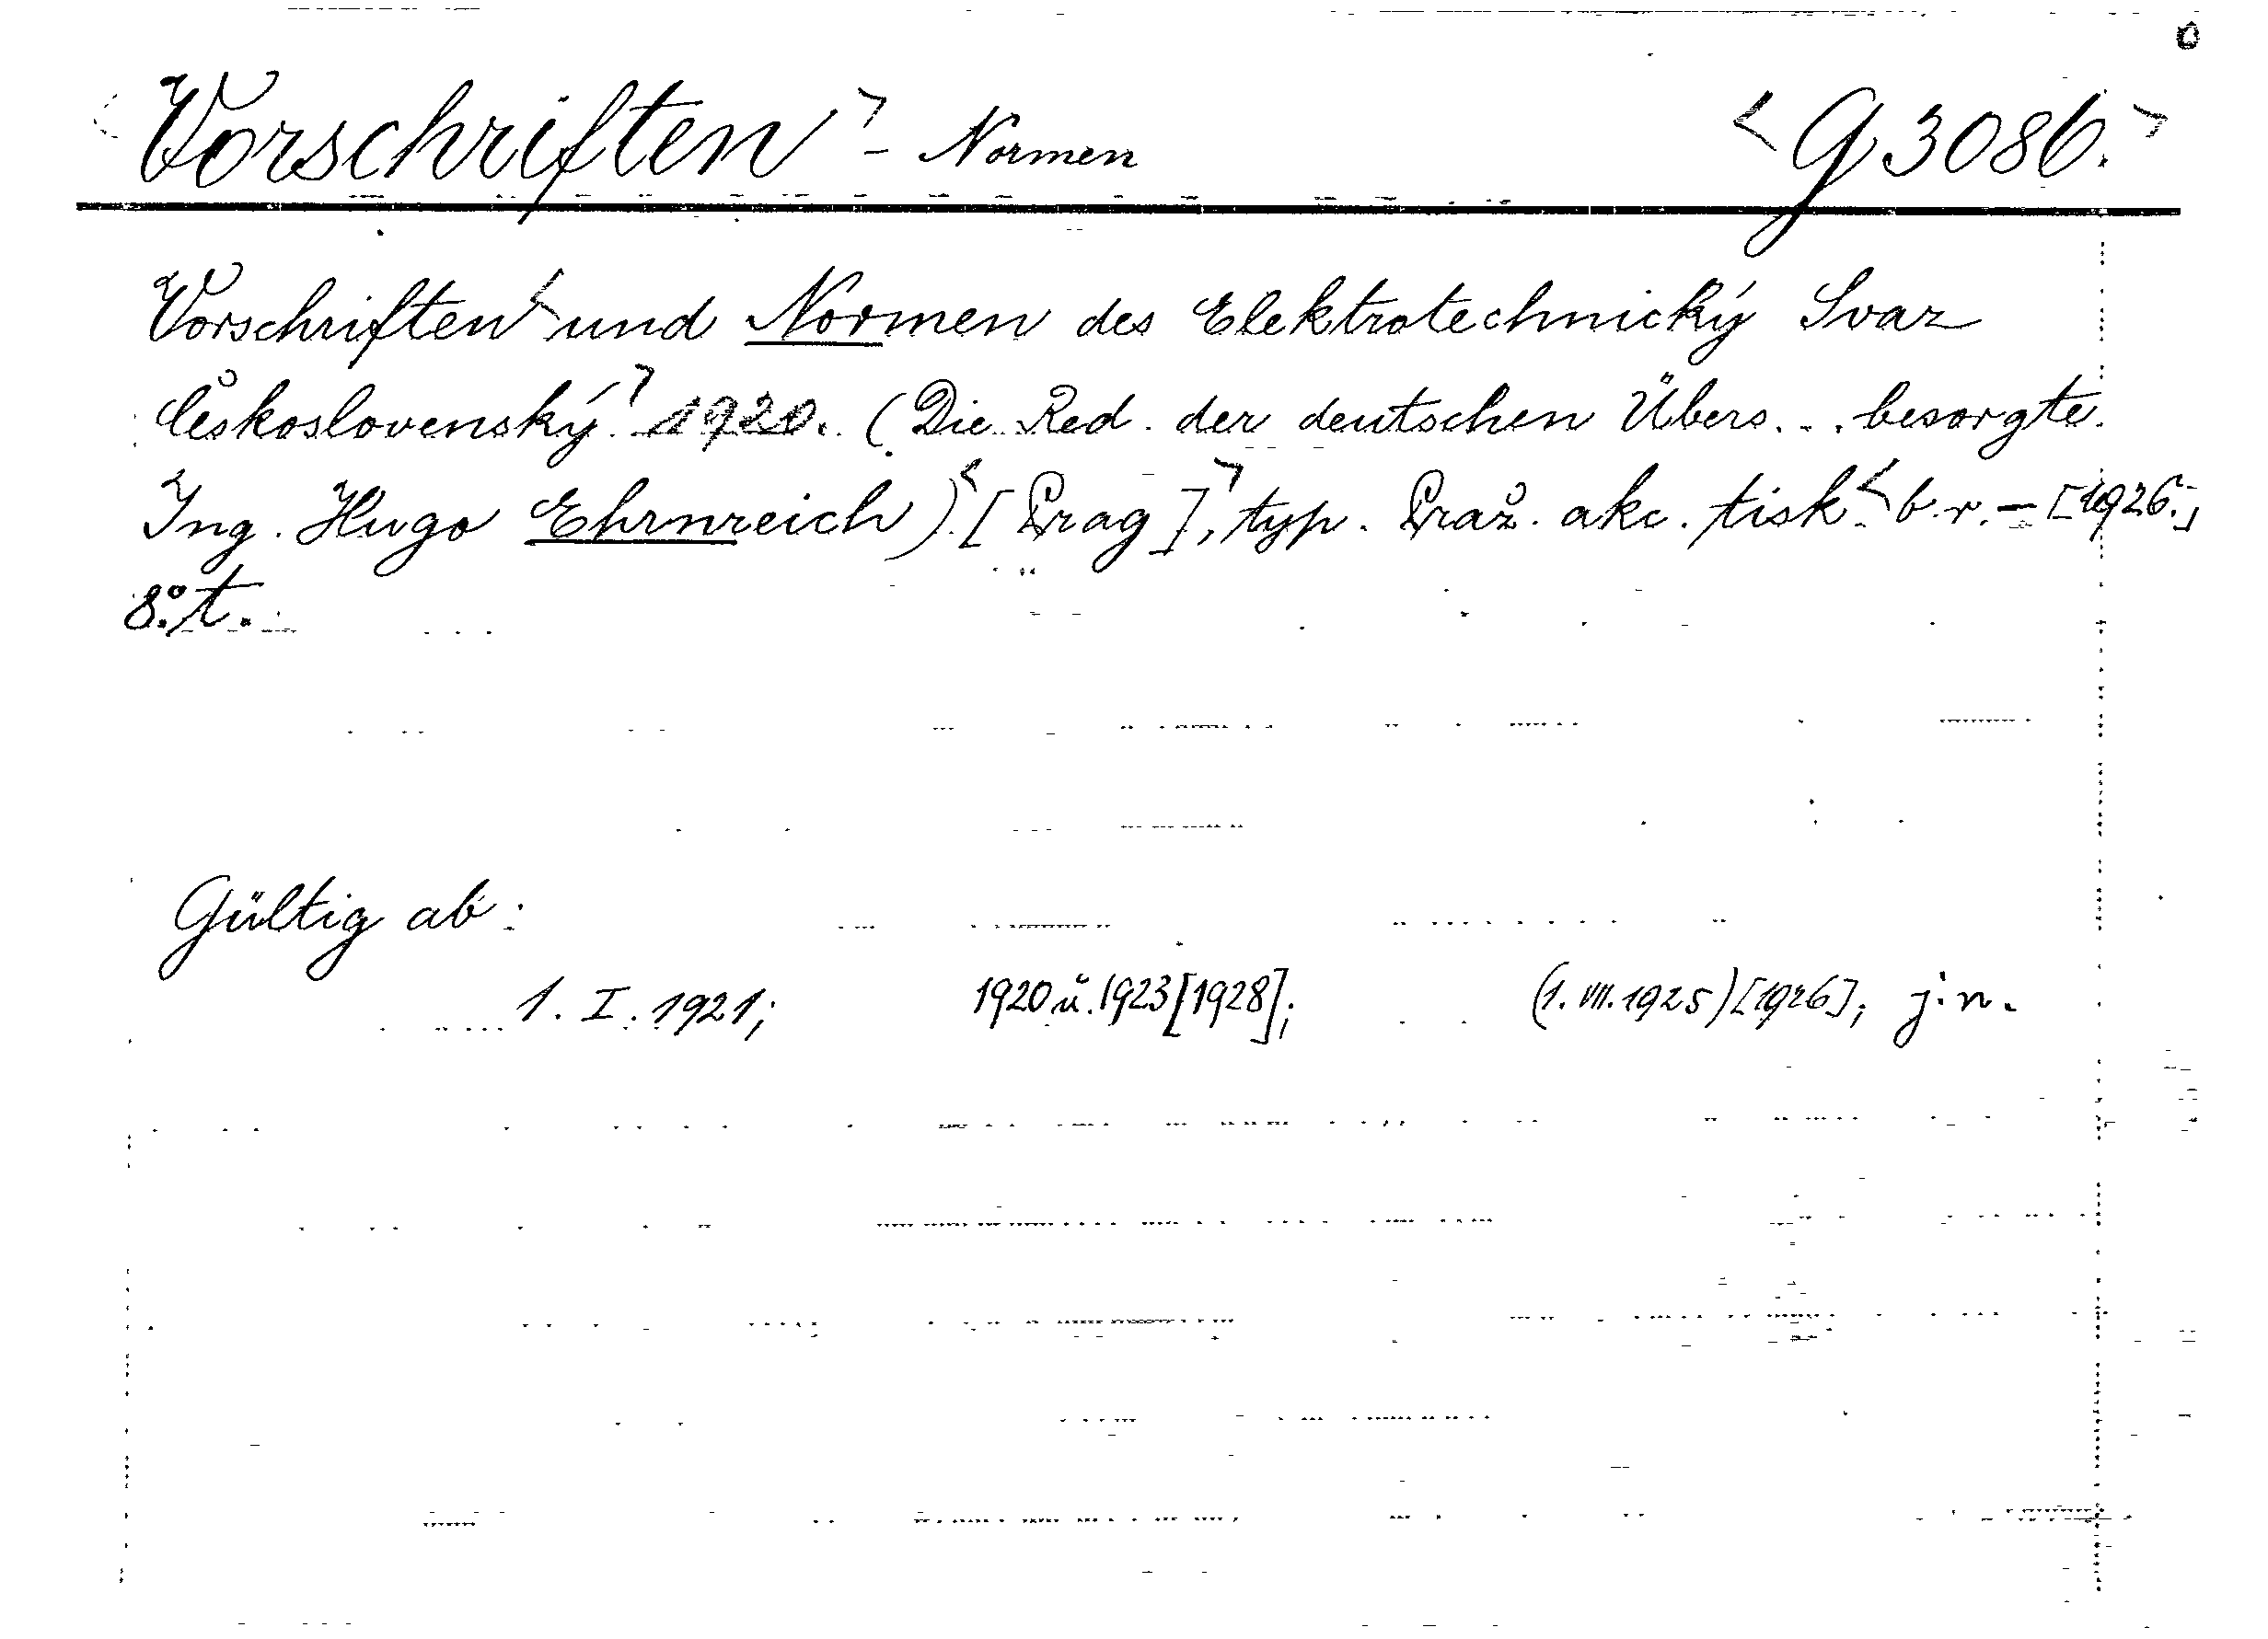 <Vorschriften> - Normen <G 3086.>
Vorschriften < und Normen des Elektrotechnický Svaz
Československý.> 1920. (Die Red. der deutschen Übers... besorgte
Ing. Hugo Ehrnreich).< [Prag],> typ. Praž. akc. tisk.< b. r. – [1926.]
8.° t.
Gültig ab:
1. I. 1921; 1920 u. 1923 [1928]; (1. VII. 1925) [1926]; j. n.